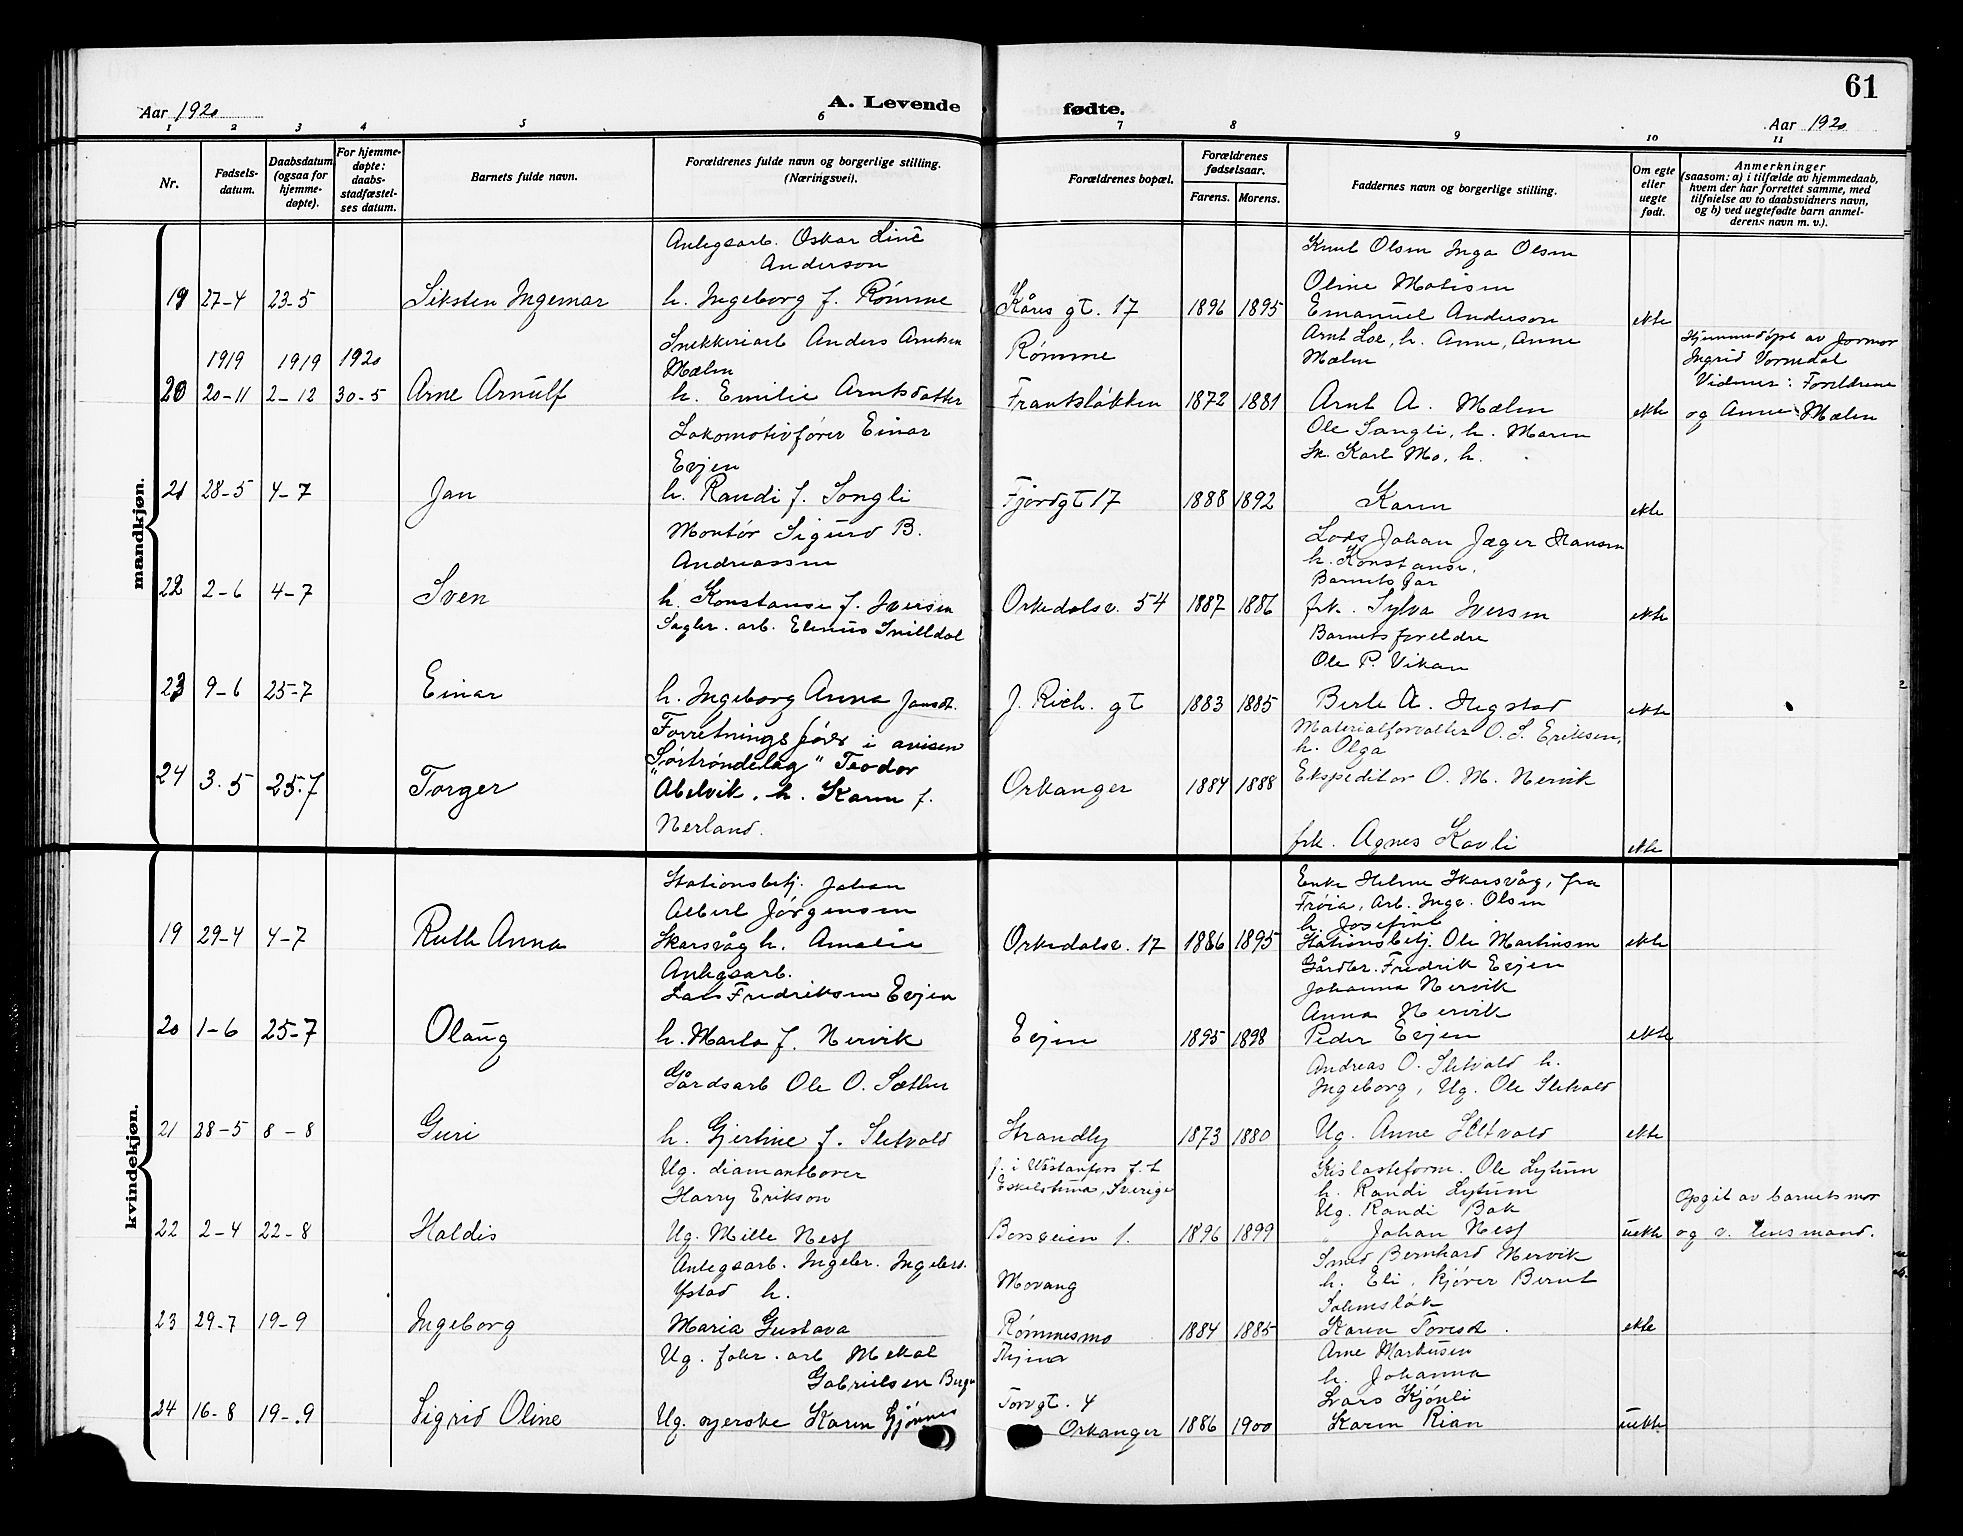 61
Aar 1920
A. Levende
fødte.
Aar 1920
1 2 3 4 5 6 7 8 9 10 11
Nr.
Fødsels-
datum.
Daabsdatum
(ogsaa for
hjemme-
døpte).
For hjemme-
døpte:
daabs-
stadfæstel-
ses datum.
Barnets fulde navn.
Forældrenes fulde navn og borgerlige stilling.
(Næringsvei).
Forældrenes bopæl.
Forældrenes
fødselsaar.
Farens. Morens.
Faddernes navn og borgerlige stilling.
Om egte
eller
uegte
født.
Anmerkninger
(saasom: a) i tilfælde av hjemmedaab,
hvem der har forrettet samme, med
tilføielse av to daabsvidners navn,
og b) ved uegtefødte barn anmel-
derens navn m. v.).
mandkjøn.
19 27-4 23-5 Siksten Ingemar
Anlegsarb. Oskar Line
Anderson
h. Ingeborg f. Rømme
Kåres gt. 17 1896 1895
Knut Olsen Inga Olsen
Oline Matisen
Emanuel Anderson
ekte
1919 1919 1920
20 20-11 2-12 30-5 Arne Arnulf
Snekkeriarb Anders Arntsen
Mælen
h. Emilie Arntsdatter
Rømme
Frantsløkken 1872 1881
Arnt Loe, h. Anne, Anne
Mælen
Arnt A. Mælen
ekte
Hjemmedøpt av Jormor
Ingrid Vormdal
Vidner: Foreldrene
og Anne Mælen
21 28-5 4-7 Jan
Lokomotivfører Einar
Evjen
h. Randi f. Songli
Fjordgt 17 1888 1892
Ole Sangli, h. Maren
Sn. Karl Mo, h.
Karen
ekte
22 2-6 4-7 Sven
Montør Sigurd B.
Andreassen
h. Konstanse f. Iversen
Orkedalsv. 54 1887 1886
Lods Johan Jæger Hansen
h. Konstanse,
Barnets far
frk. Sylva Iversen
ekte
23 9-6 25-7 Einar
Sagbr. arb. Elenus Snilldal
h. Ingeborg Anna Jansdt.
J. Rich. gt 1883 1885
Barnets foreldre
Ole P. Vikan
Berte A. Hegstad
ekte
24 3.5 25-7 Torger
Forretningsfører i avisen
"Sørtrøndelag" Teodor
Abelvik. h. Karen f.
Nerland.
Orkanger 1884 1888
Materialforvalter O. S. Eriksen,
h. Olga
Ekspeditør O. M. Nervik
frk. Agnes Kavli
ekte
kvindekjøn.
19 29-4 4-7 Ruth Anna
Stationsbetj. Johan
Albert Jørgensen
Skarsvåg h. Amalie
Orkedalsv. 17 1886 1895
Enke Helene Skarsvåg, fra
Frøia, Arb. Inge. Olsen
h. Josefine
Stationsbetj. Ole Martinsen
ekte
20 1-6 25-7 Olaug
Anlegsarb.
Lars Fredriksen Evjen
h. Marta f. Nervik
Evjen 1895 1898
Gårdbr. Fredrik Evjen
Johanna Nervik
Anna Nervik
Peder Evjen
ekte
21 28-5 8-8 Guri
Gårdsarb Ole O. Sæther
h. Gjertine f. Sletvold
Strandby 1873 1880
Andreas O. Sletvold h.
Ingeborg, Ug. Ole Sletvold
Ug. Anne Sletvold
ekte
22 2-4 22-8 Haldis
Ug. diamantborer
Harry Erikson
Ug. Mille Ness
f. i Västanfors f. t.
Eskelstuna, Sverige
Borsveien 1. 1896 1899
Kislasteform. Ole Lytum
h. Randi Lytum
Ug. Randi Bak
" Johan Ness
uekte
Opgit av barnets mor
og v. lensmand.
23 29-7 19-9 Ingeborg
Anlegsarb. Ingebr. Ingebr.
Ystad h.
Maria Gustava
Movang
Rømmesmo 1884 1885
Smed Bernhard Nervik
h. Eli, kjører Bernt
Solemsløk
Karen Toresdt.
ekte
24 16-8 19-9 Sigrid Oline
Ug. fabr. arb Mekal
Gabrielsen Berge
Ug. syerske Karen Gjønnes
Torvgt. 4
Orkanger 1886 1900
Arne Markusen
h. Johanna
Lars Kjønli
Karen Rian
uekte